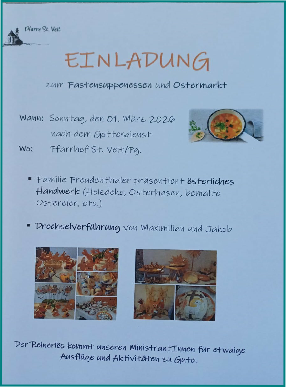 Pfarre St. Veit
EINLADUNG
zum Fastensuppenessen und Ostermarkt
Wann: Sonntag, den 01. März 2026
nach dem Gottesdienst
Wo: Pfarrhof St. Veit/Pg.
Familie Freudenthaler präsentiert österliches
Handwerk (Osterhasen, bemalte
Ostereier, etc.)
Drechselvorführung von Maximilian und Jakob
Der Reinerlös kommt unseren Ministrant*Innen für etwaige
Ausflüge und Aktivitäten zu Gute.